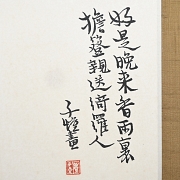 好是晚来香雨裏
擔簦親送綺羅人
子愷畫